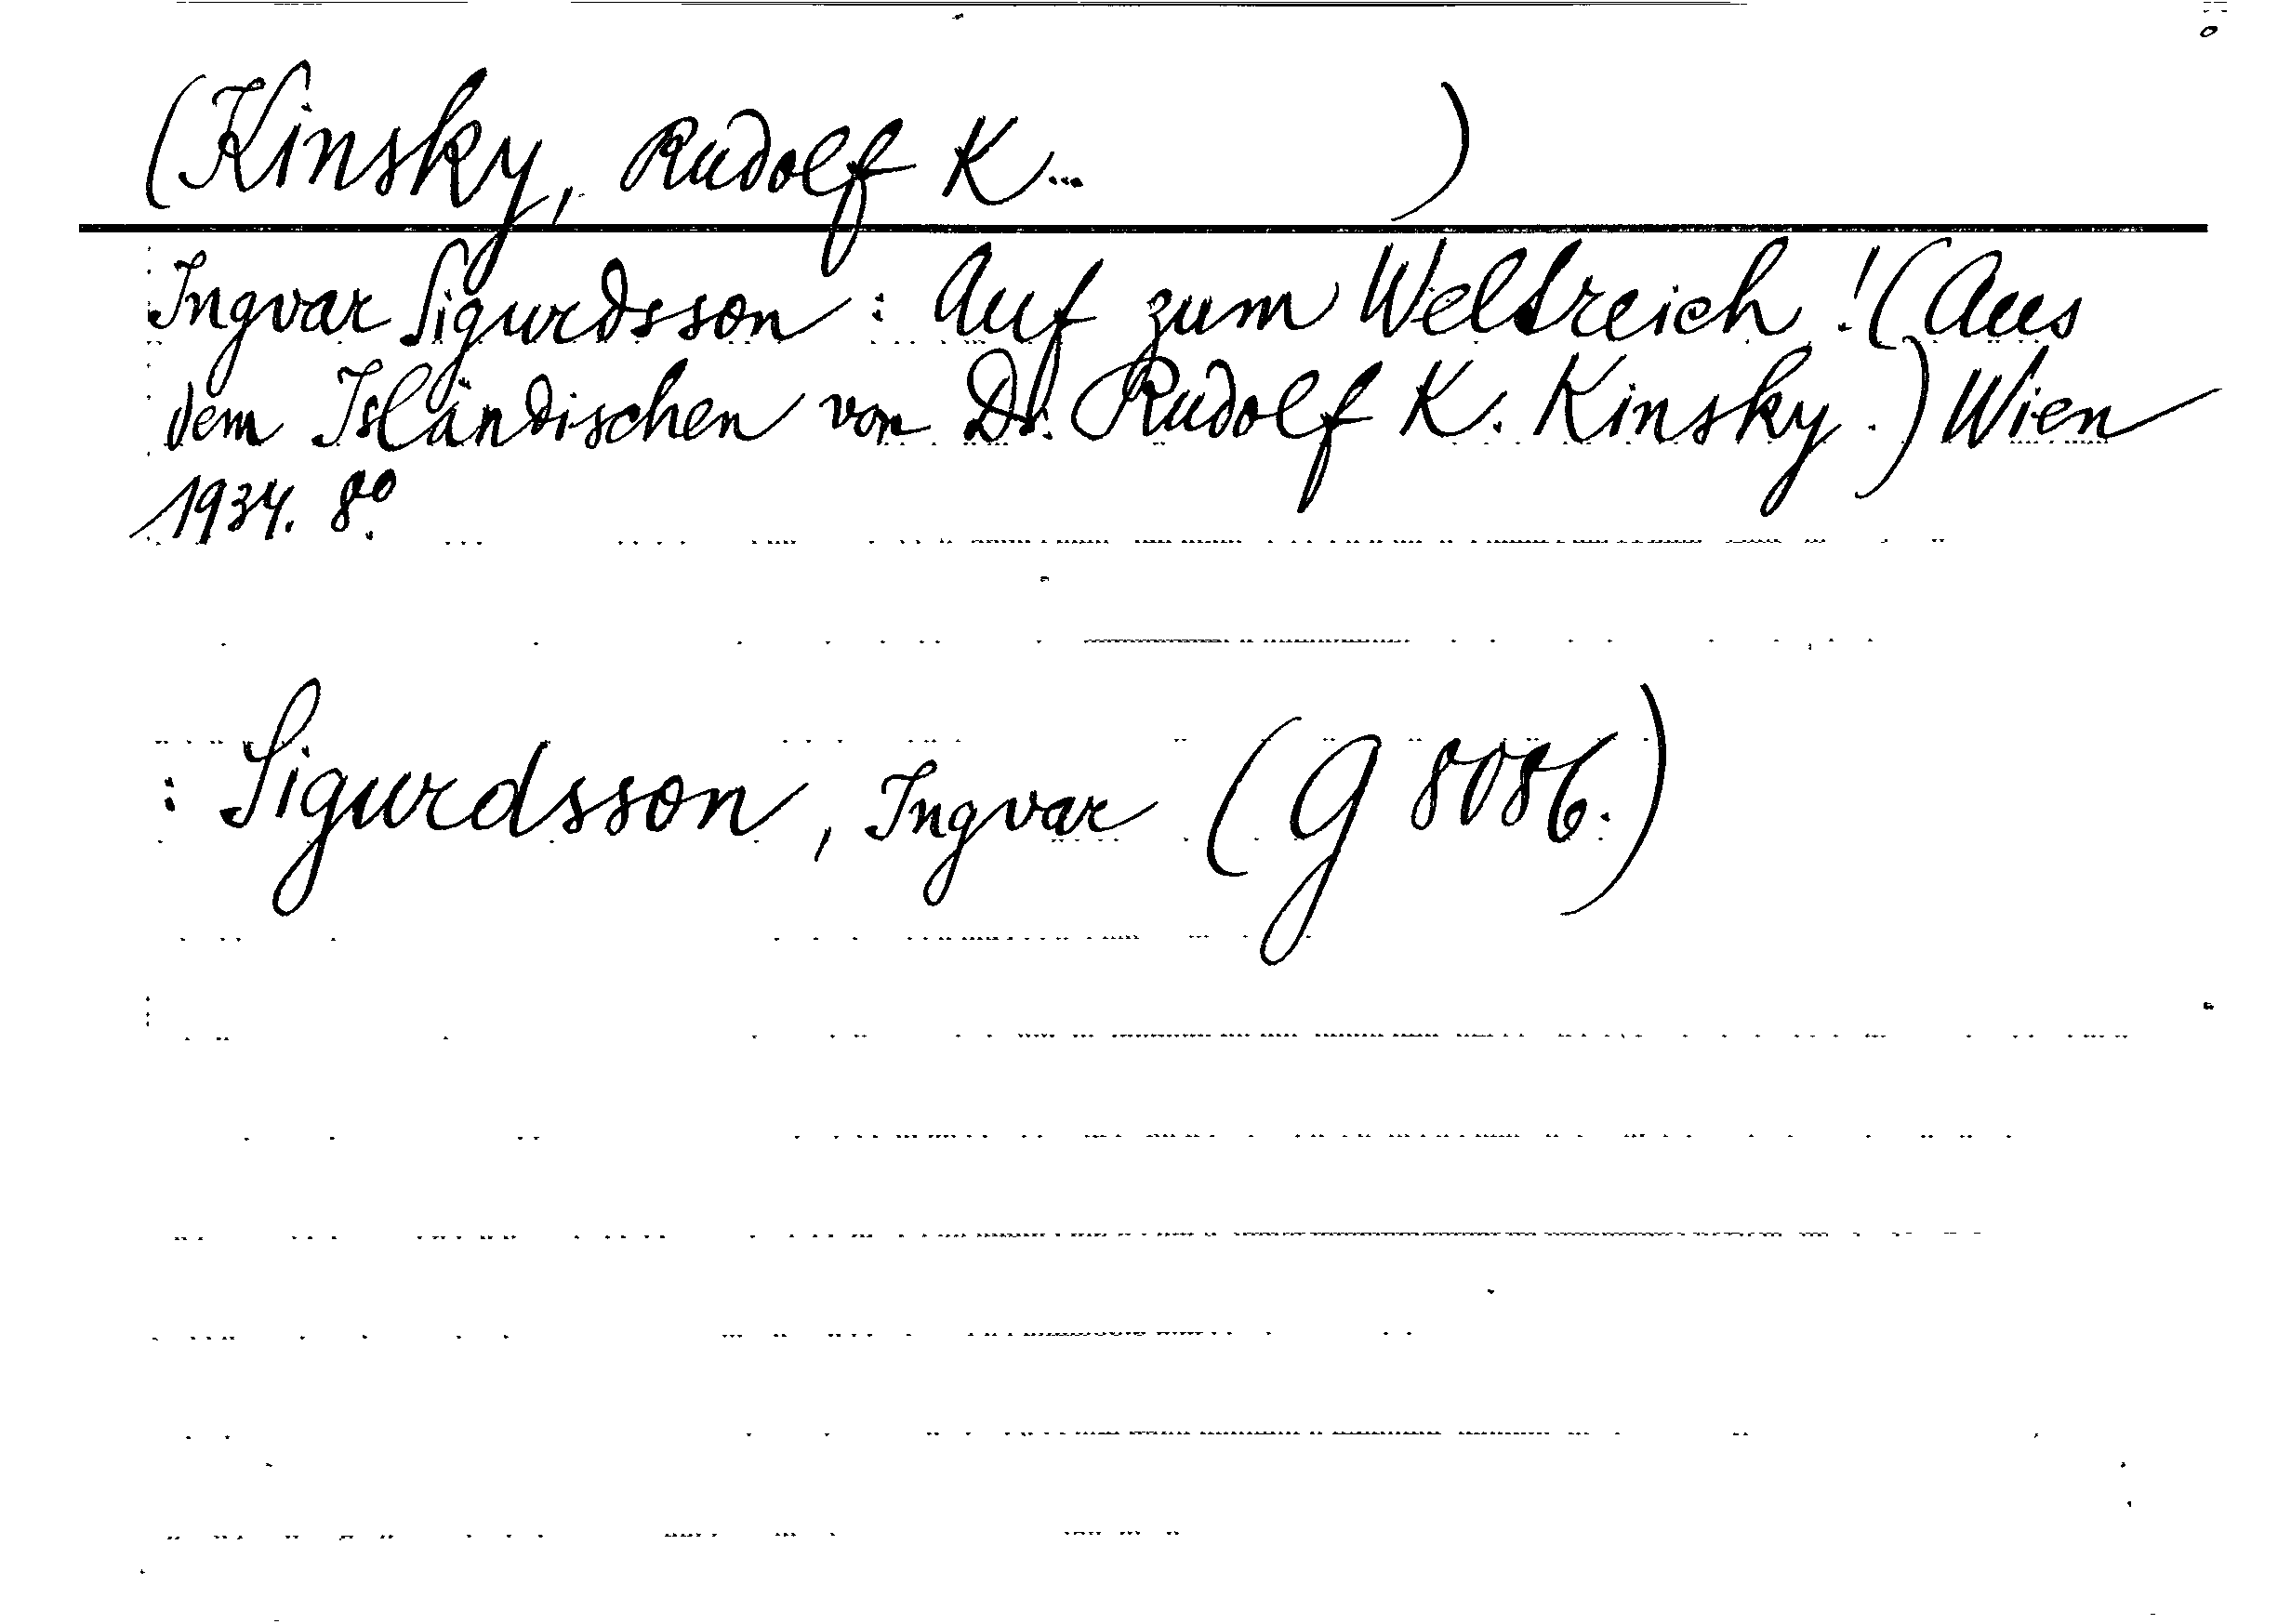 (Kinsky, Rudolf K... )
Ingvar Sigurdsson: Auf zum Weltreich! (Aus
dem Isländischen von Dr. Rudolf K. Kinsky.) Wien
1934. 8°.
: Sigurdsson, Ingvar (G 8086.)